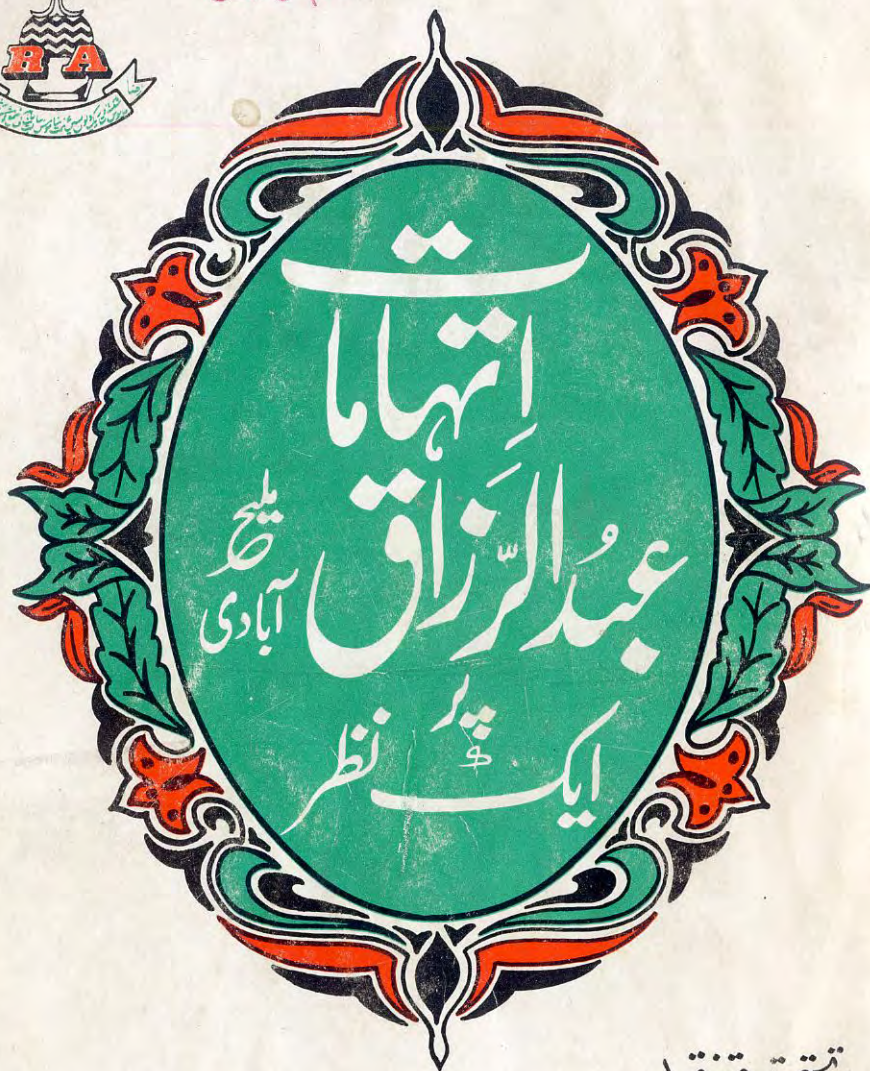 R A
رضا
اِتہامات
عبدُ الرَّزاق
ملیح
آبادی
پر
ایک نظر